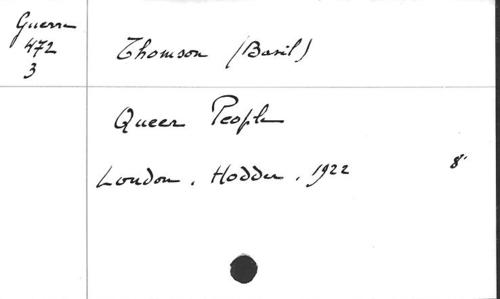 Guerra
472
3
Thomson (Basil)
Queer People
London, Hodder, 1922 8°